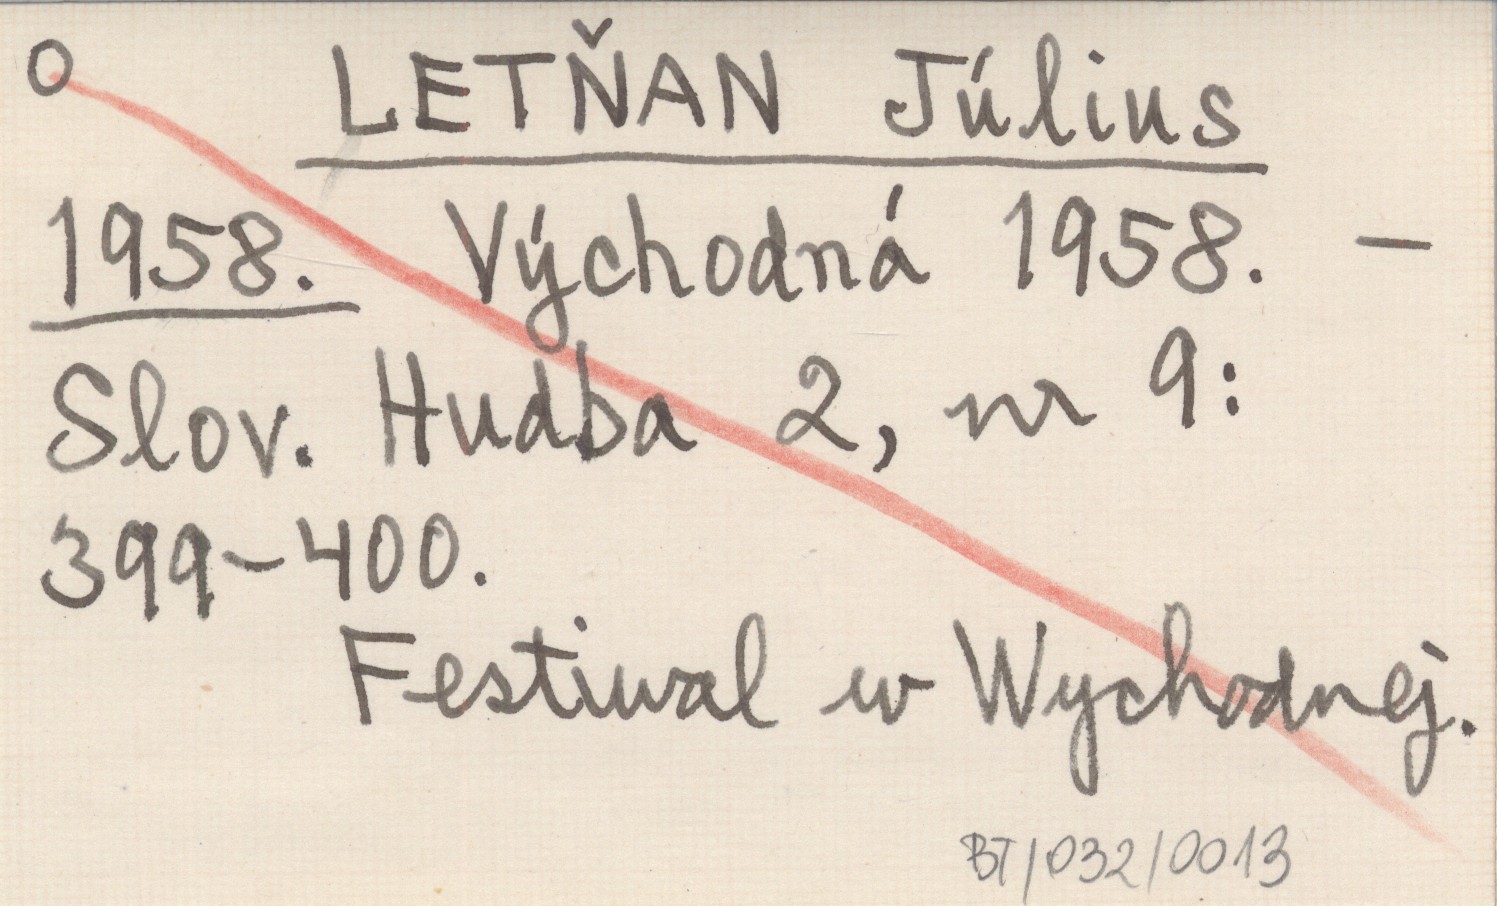 O LETŇAN Július
1958. Východná 1958. –
Slov. Hudba 2, nr 9:
399–400.
Festiwal w Wychodnej.
BT/032/0013